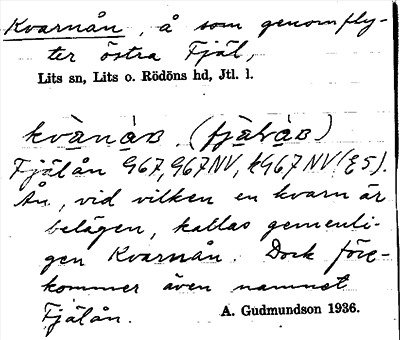 Kvarnån, å som genomfly-
ter östra Fjäl,
Lits sn, Lits o. Rödöns hd, Jtl. l.
Fjälån G67, G67NV, kG67NV (E5).
Ån, vid vilken en kvarn är
belägen, kallas gemenli-
gen Kvarnån. Dock före-
kommer även namnet
Fjälån.
A. Gudmundson 1936.